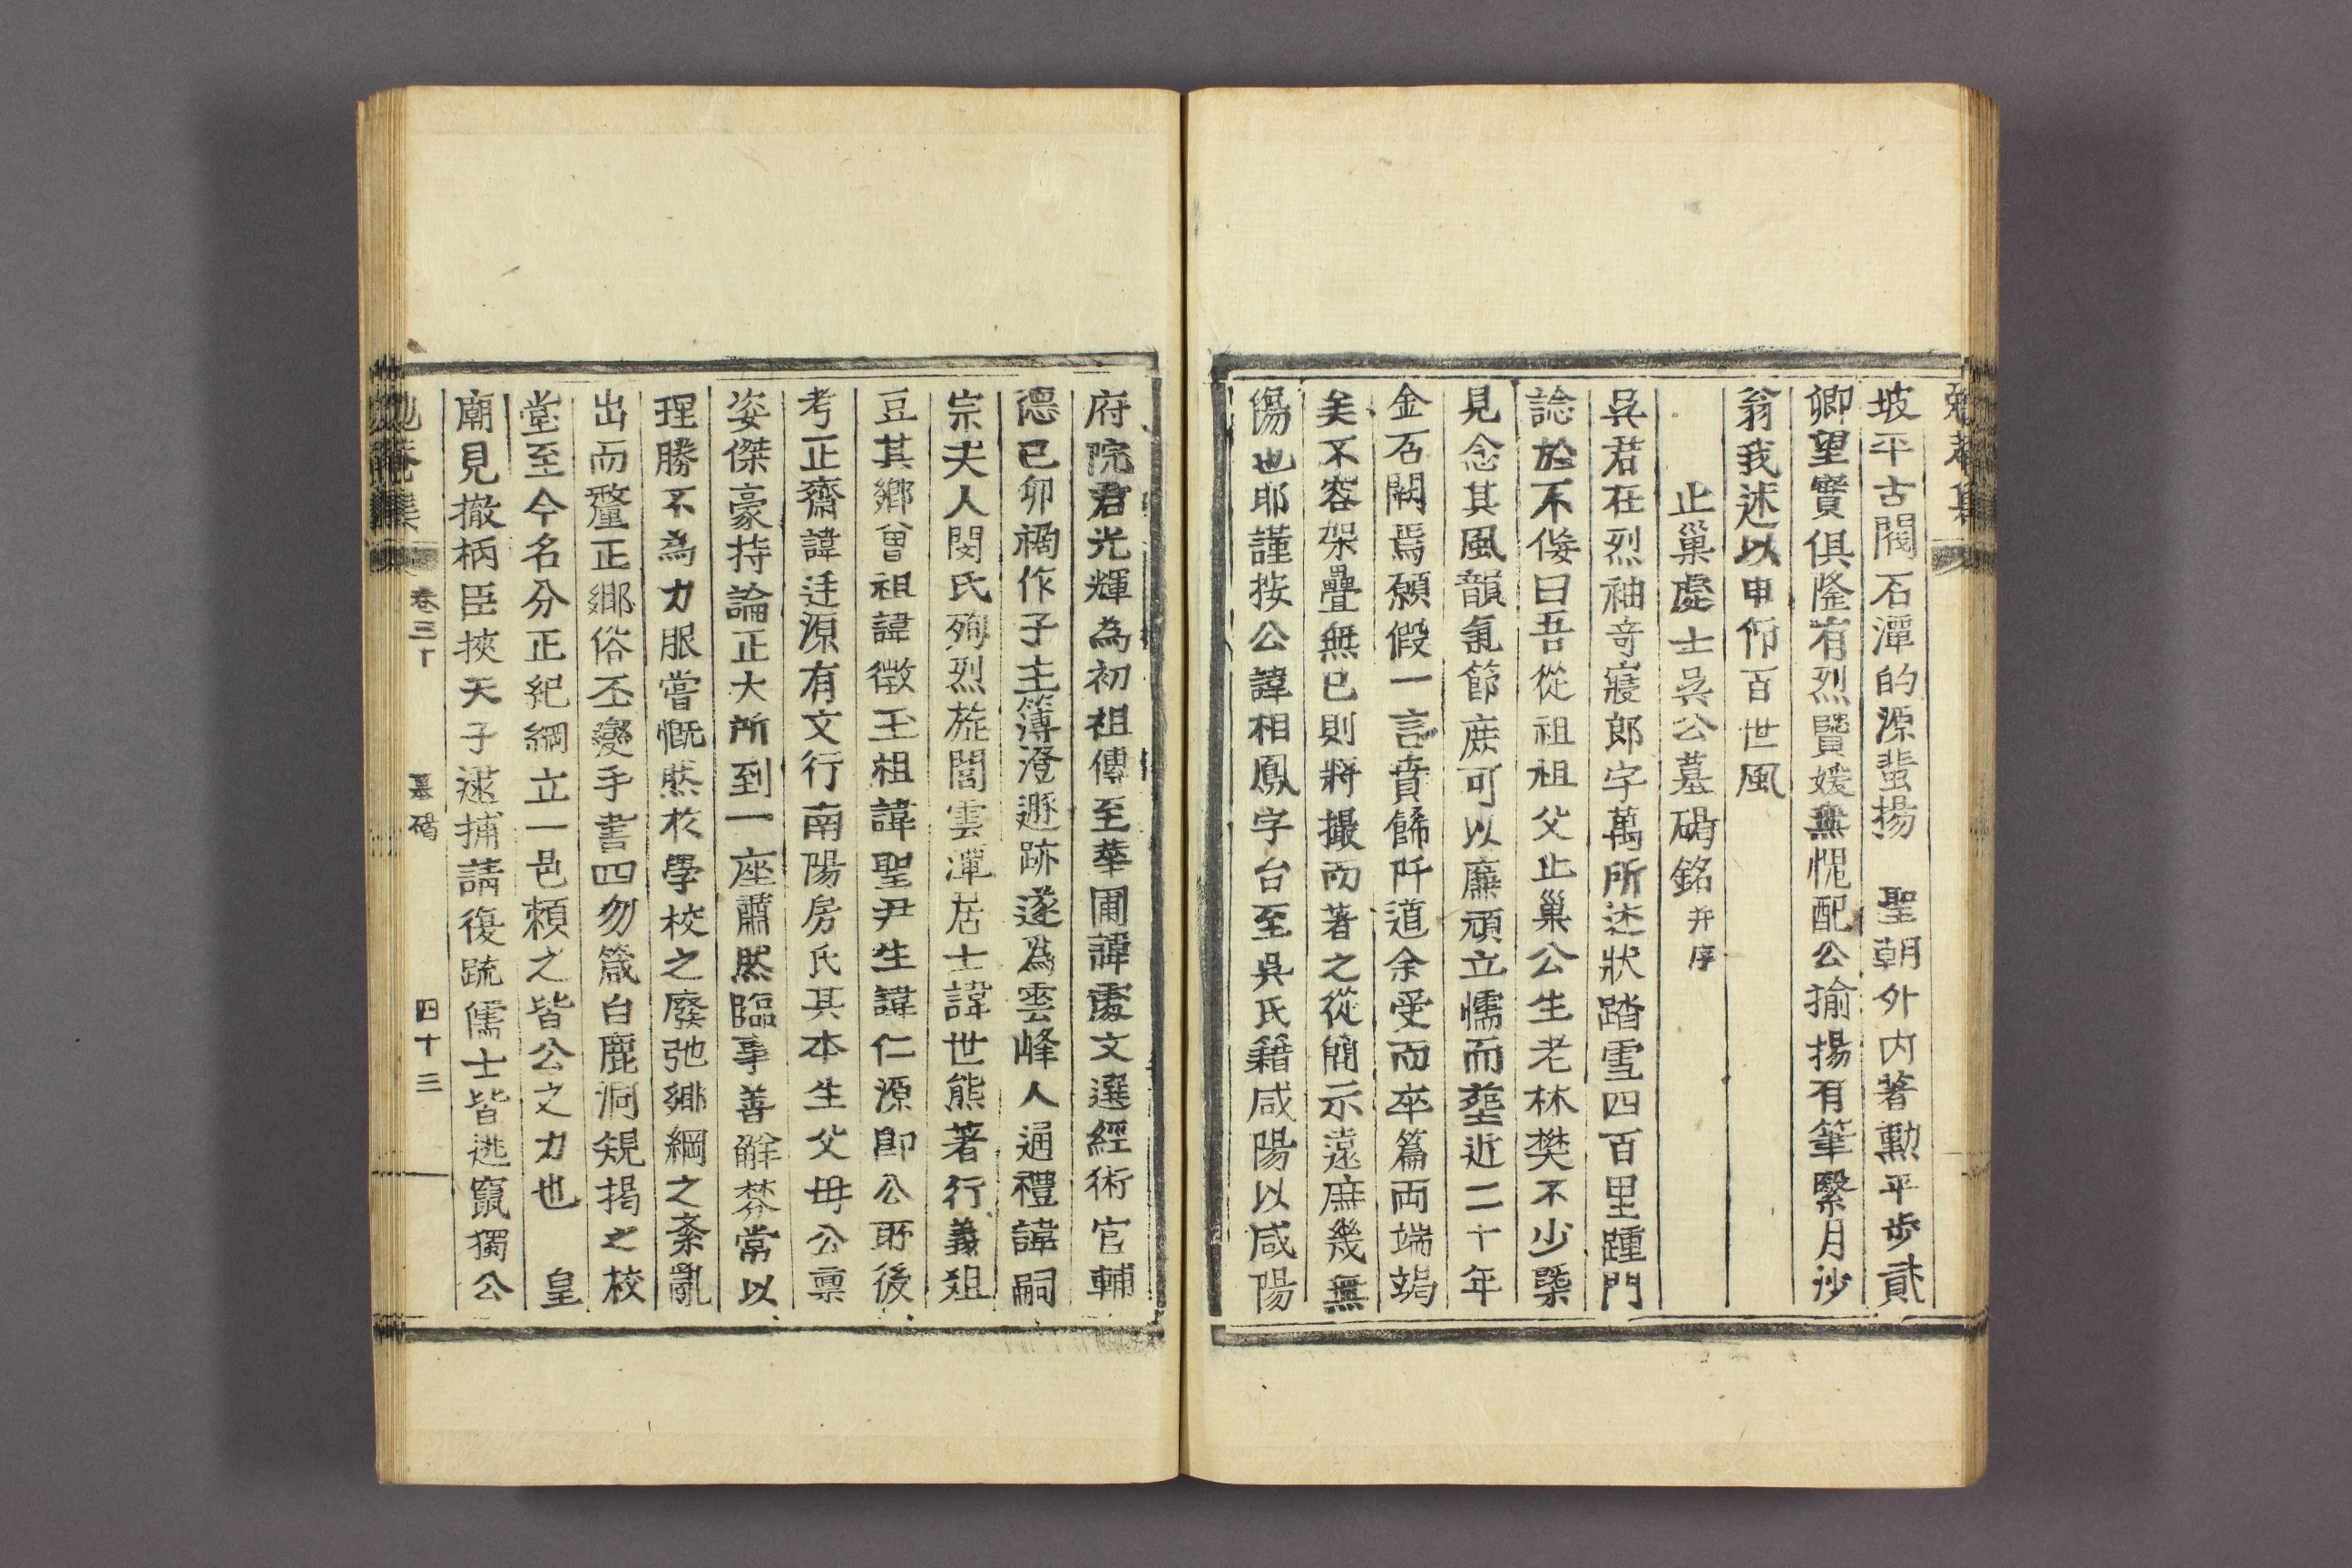 勉菴集
坡平古閥石潭的源蜚揚　聖朝外內著勳平步貳
卿望實俱隆有烈賢媛無愧配公揄揚有筆繄月沙
翁我述以申仰百世風
止巢處士吳公墓碣銘并序
吳君在烈袖奇寢郎字萬所述狀踏雪四百里踵門
諗於不侫曰吾從祖祖父止巢公生老林樊不少槩
見念其風韻氣節庶可以廉頑立懦而堊近二十年
金石闕焉願假一言賁餙阡道余受而卒篇両端竭
矣不容架疊無已則將撮而著之從簡示遠庶幾無
傷也耶謹按公諱相鳳字台至吳氏籍咸陽以咸陽
府院君光輝為初祖傳至華圃諱慶文選經術官輔
德己卯禍作子主簿澄遯跡遂為雲峰人通禮諱嗣
宗夫人閔氏殉烈旌閭雲潭居士諱世熊著行義俎
豆其鄉曾祖諱徵玉祖諱聖尹生諱仁源卽公所後
考正齋諱廷源有文行南陽房氏其本生父毋公禀
姿傑豪持論正大所到一座肅然臨事善觧棼常以
理勝不為力服嘗慨然於學校之廢弛鄉綱之紊亂
出而釐正鄉俗丕變手書四勿箴白鹿洞規揭之校
堂至今名分正紀綱立一邑頼之皆公之力也　皇
廟見撤柄臣挾天子逮捕請復疏儒士皆逃竄獨公
勉菴集　卷三十　墓碣　四十三